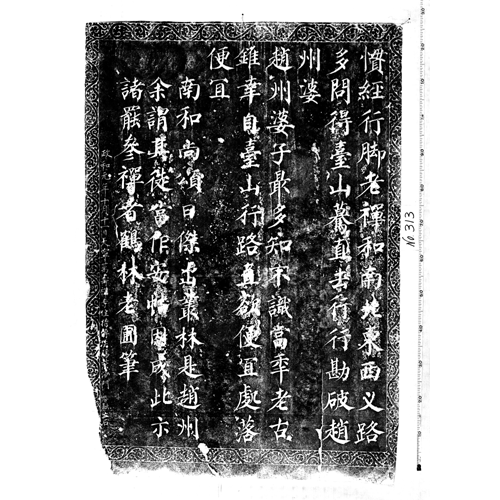 慣經行脚老禪和南北東西义路
多問得臺山驀直去行行勘破趙
州婆
趙州婆子最多知不識當年老古
錐幸自臺山行路直欲便宜處落
便宜
南和尚頌曰傑出叢林是趙州
余謂其徒當作安帖因成此示
諸罷參禪者鶴林老圃筆
No 313